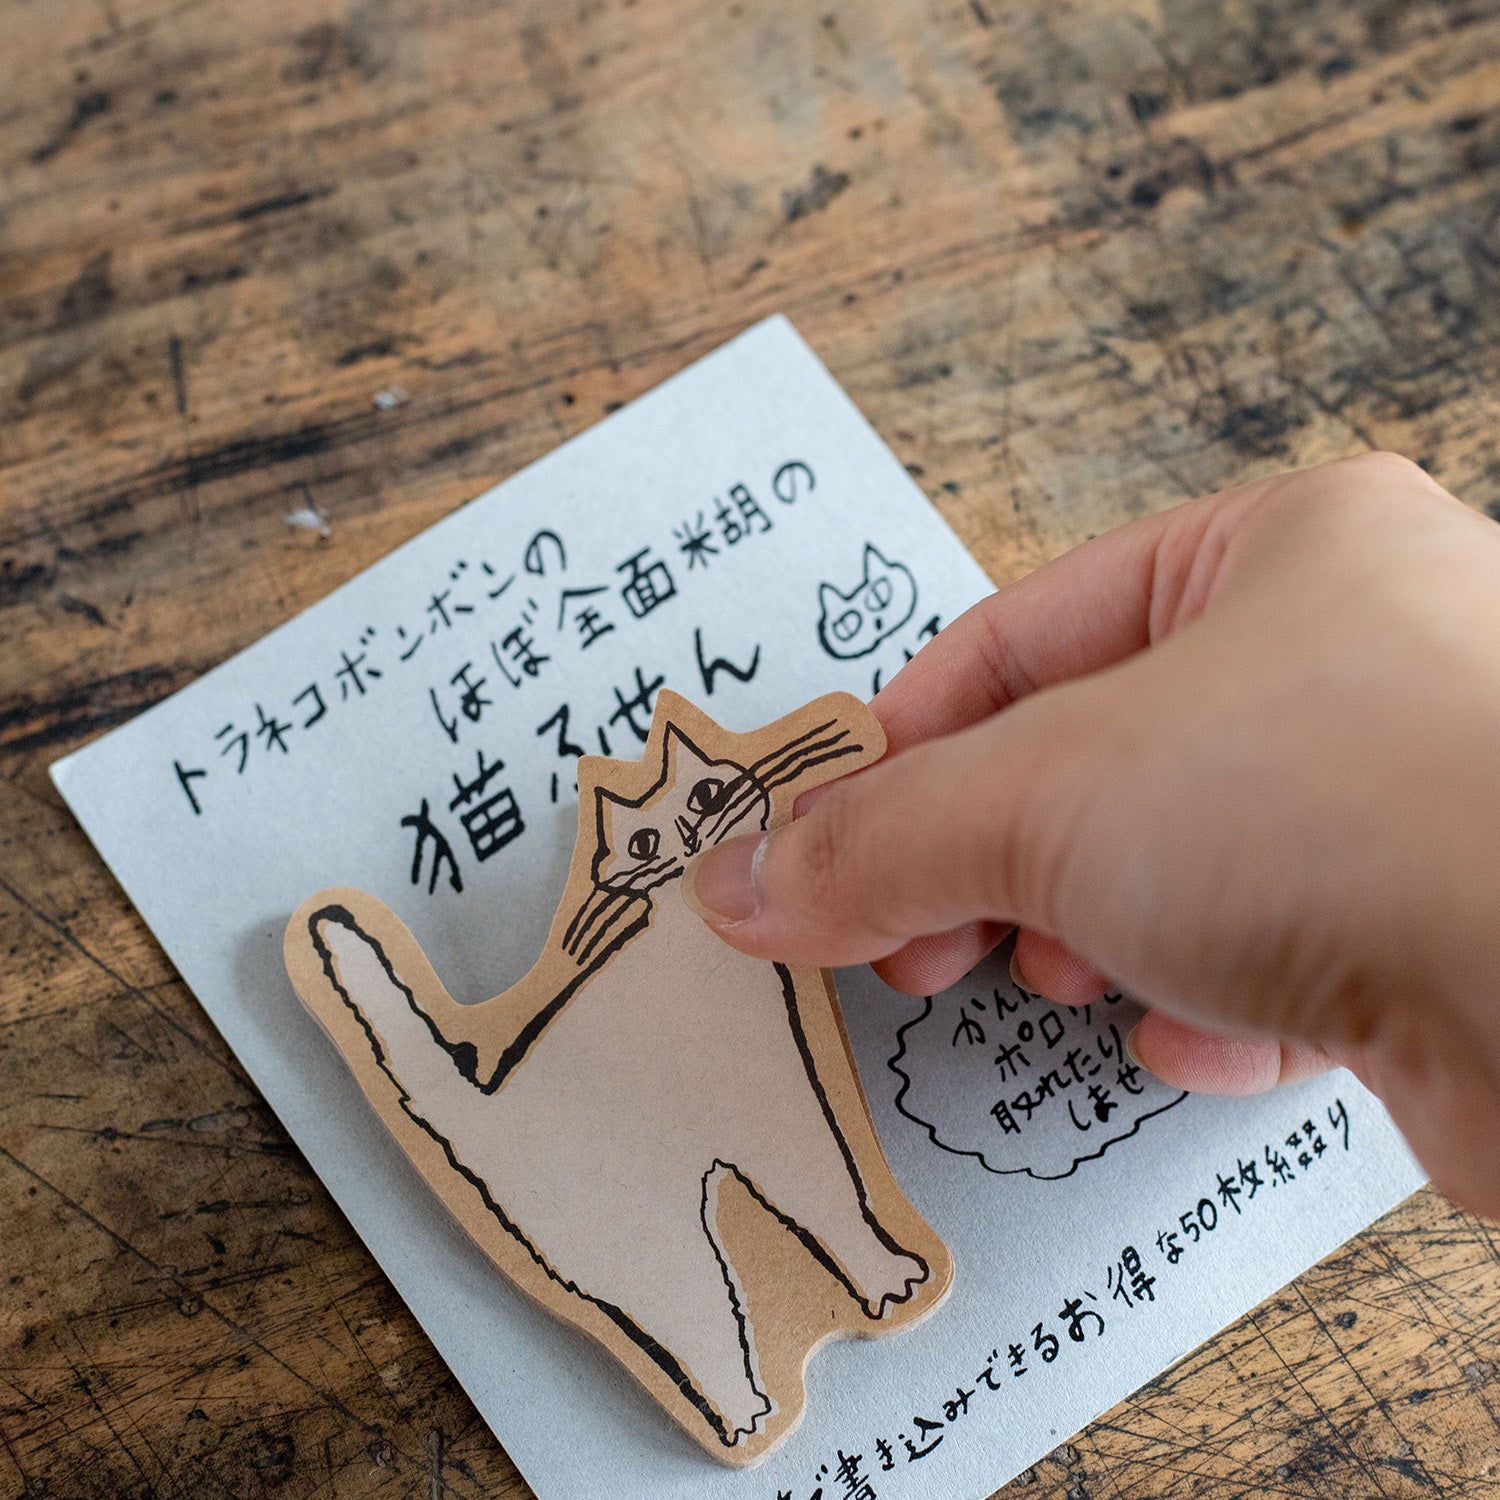 トラネコボンボンの
ほぼ全面米胡の
猫ふせん
ポロリと
取れたり
しませ
書き込みできるお得な50枚綴り